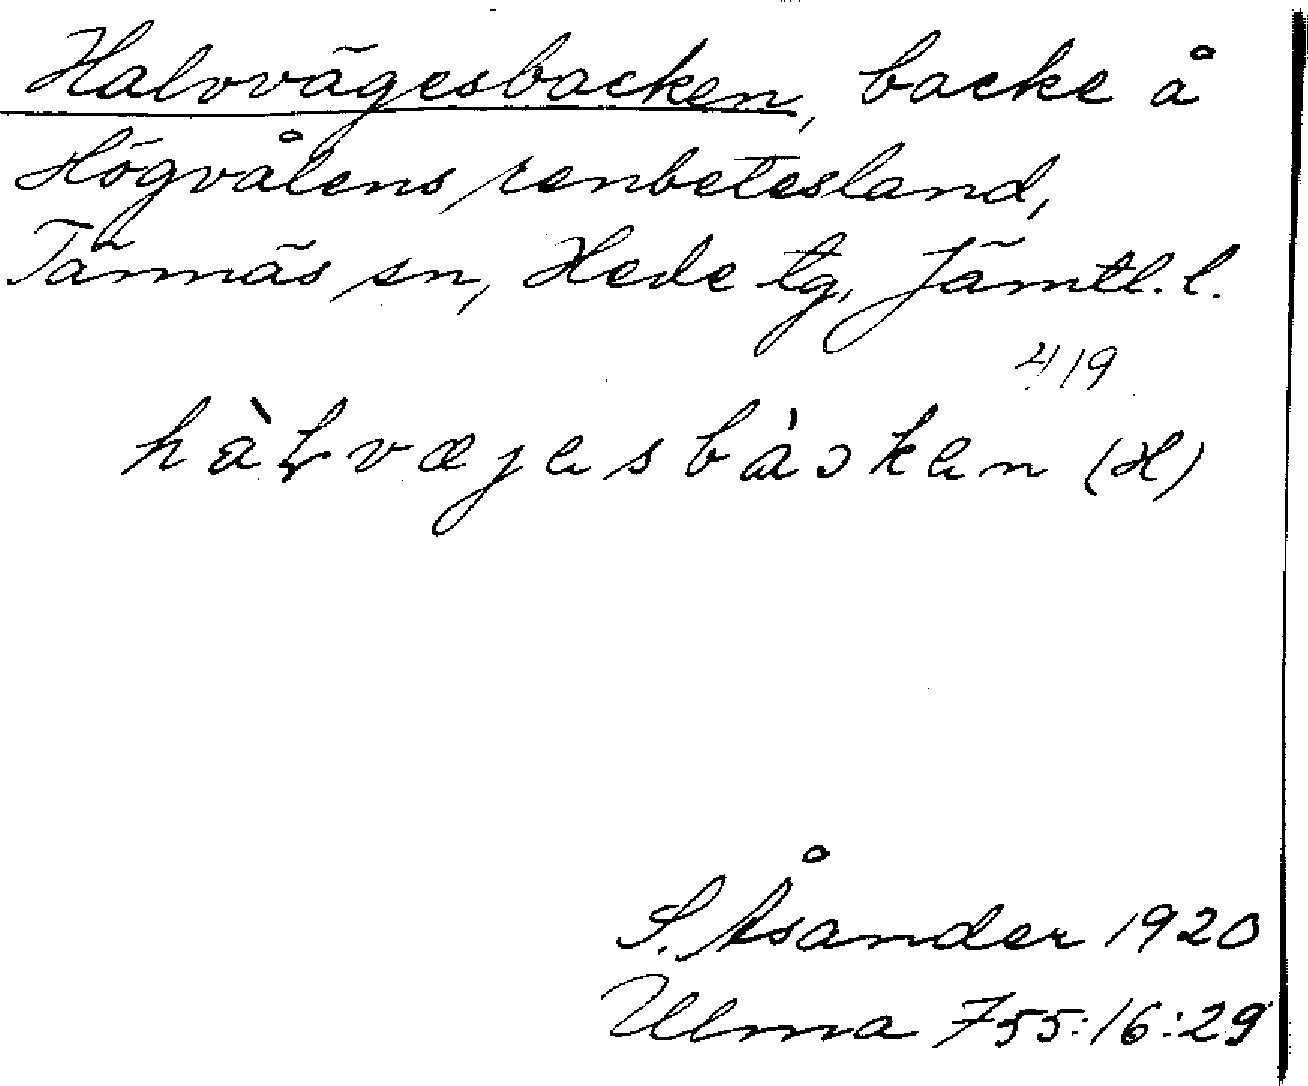 Halvvägesbacken, backe å
Högvålens renbetesland,
Tännäs sn, Hede tg, Jämtl. l.
419
hàɫvæjesbàcken (H)
S. Åsander 1920
Ulma 755:16:29